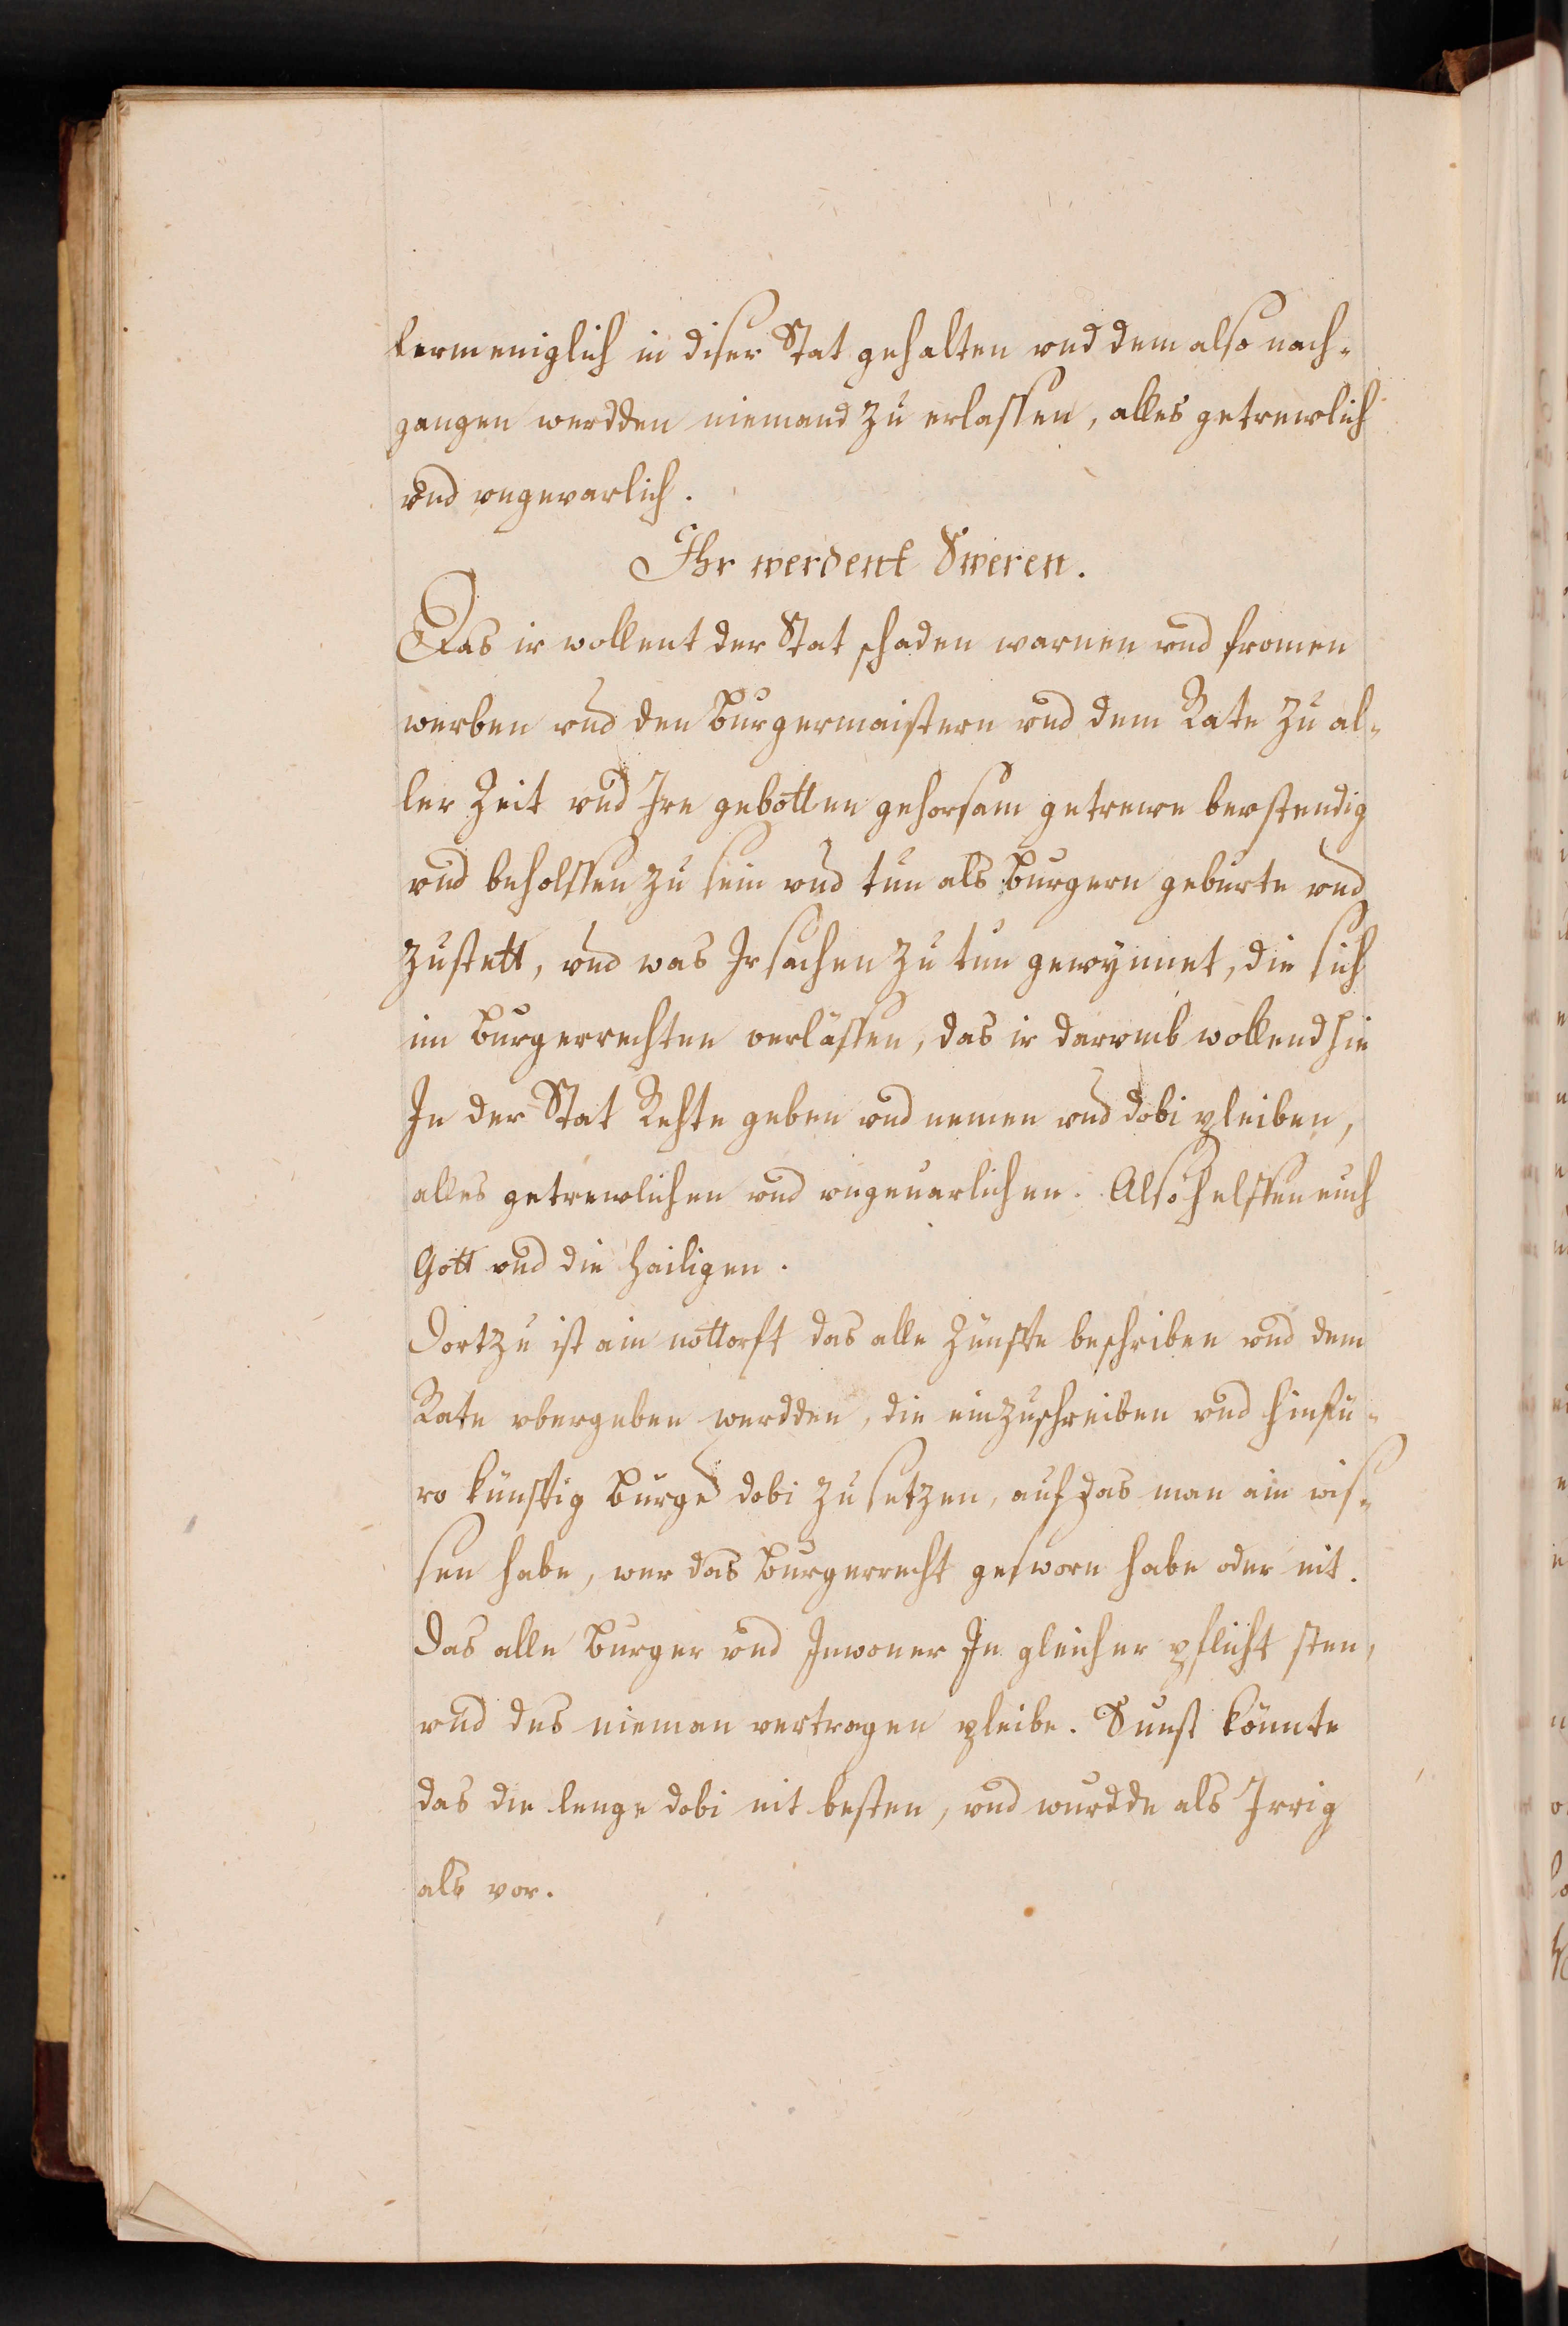 lermeniglich in diser Stat gehalten vnd dem also nach-
gangen werdden niemand zu erlassen, alles getrewlich
vnd vngevarlich.
Ihr werdent Sweren.
Das ir wollent der Stat schaden warnen vnd fromen
werben vnd den Burgermaistern vnd dem Rate zu al-
ler Zeit vnd Jre gebotten gehorsam getrewe beystendig
vnd beholffen zu sein vnd tun als Burgern geburte vnd
zustett, vnd was Jr sachen zu tun gewynnet, die sich
im Burgerrechten verlassen, das ir darvmb wollend hie
Jn der Stat Rehte geben vnd nemen vnd dobi pleiben,
alles getrewlichen vnd vngeuarlichen. Also helffen euch
Gott vnd die Hailigen.
Dortzu ist ain nottorft das alle Zünffte beschriben vnd dem
Rate vbergeben werdden, die einzuschreiben vnd hinfü-
ro künfftig Burger dobi zu setzen, auf das man ain wis-
sen habe, wer das Burgerrecht gesworn habe oder nit.
Das alle Burger vnd Jnwoner Jn gleicher pflicht sten,
vnd des nieman vertragen pleibe. Sunst könnte
das die lenge dobi nit besten, vnd wurdde als Jrrig
als vor.